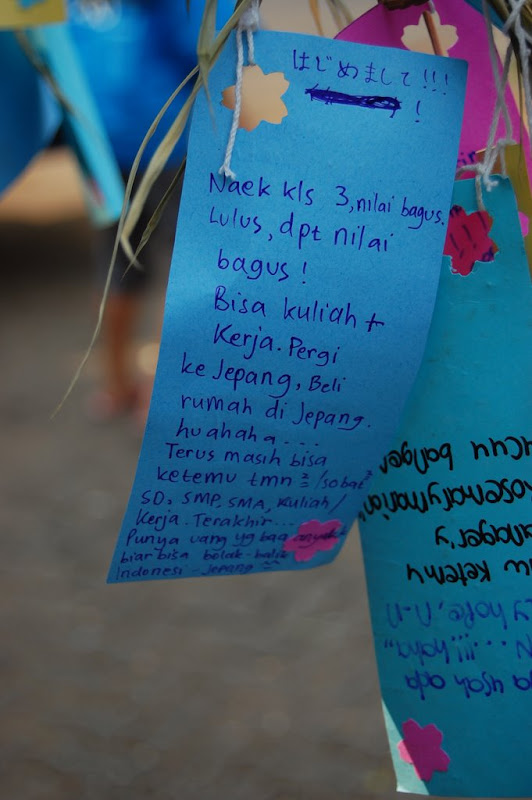 はじめまして!!!
!
Naek kls 3, nilai bagus.
Lulus, dpt nilai
bagus!
Bisa kuliah +
Kerja. Pergi
ke Jepang, Beli
rumah di Jepang.
huahaha...
Terus masih bisa
ketemu tmn²/sobat²
SD, SMP, SMA, Kuliah/
Kerja. Terakhir...
Punya uang yg
biar bisa bolak-balik
Indonesi-Jepang
banget
ketemu
hope, n_n
N...,!!! haha"
usah ada